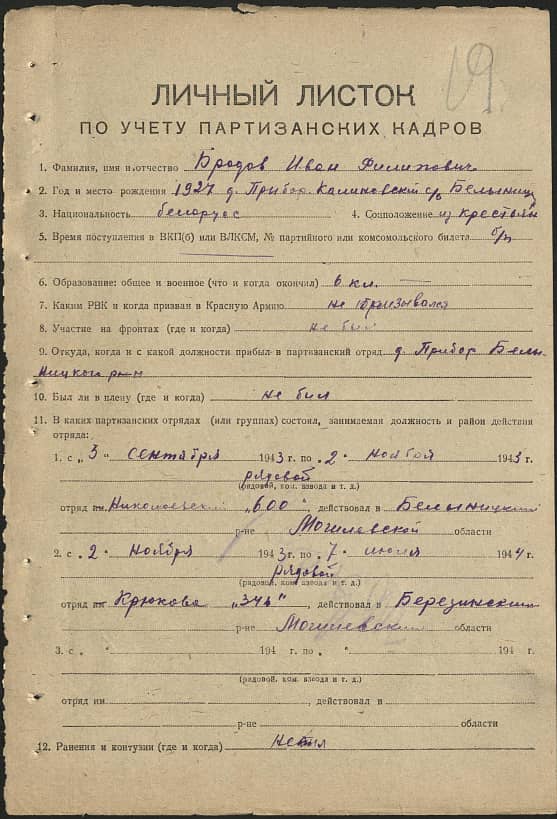 19
ЛИЧНЫЙ ЛИСТОК
ПО УЧЕТУ ПАРТИЗАНСКИХ КАДРОВ
1. Фамилия, имя и отчество Бродов Иван Филипович
2. Год и место рождения 1927 д. Прибор Калиновский с/с Белынич
3. Национальность белорус 4. Соцположение из крестьян
5. Время поступления в ВКП(б) или ВЛКСМ, № партийного или комсомольского билета б/п
6. Образование: общее и военное (что и когда окончил) 6 кл.
7. Каким РВК и когда призван в Красную Армию не призывался
8. Участие на фронтах (где и когда) не был
9. Откуда, когда и с какой должности прибыл в партизанский отряд д. Прибор Белы-
ницкого р-н
10. Был ли в плену (где и когда) не был
11. В каких партизанских отрядах (или группах) состоял, занимаемая должность и район действия
отряда:
1. с „3 “ сентября 1943 г. по „2 “ ноября 1943 г.
рядовой
(рядовой, ком. взвода и т. д.)
отряд им. "600", действовал в Белыницкий
р-не Могилевской области
2. с „2 “ ноября 1943 г. по „7 “ июля 1944 г.
рядовой
(рядовой, ком. взвода и т. д.)
отряд им Крюкова "345", действовал в Березинский
р-не Могилевский области
3. с „ “ 194 г. по „ “ 194 г.
(рядовой, ком. взвода и т. д.)
отряд им , действовал в
р-не области
12. Ранения и контузии (где и когда)